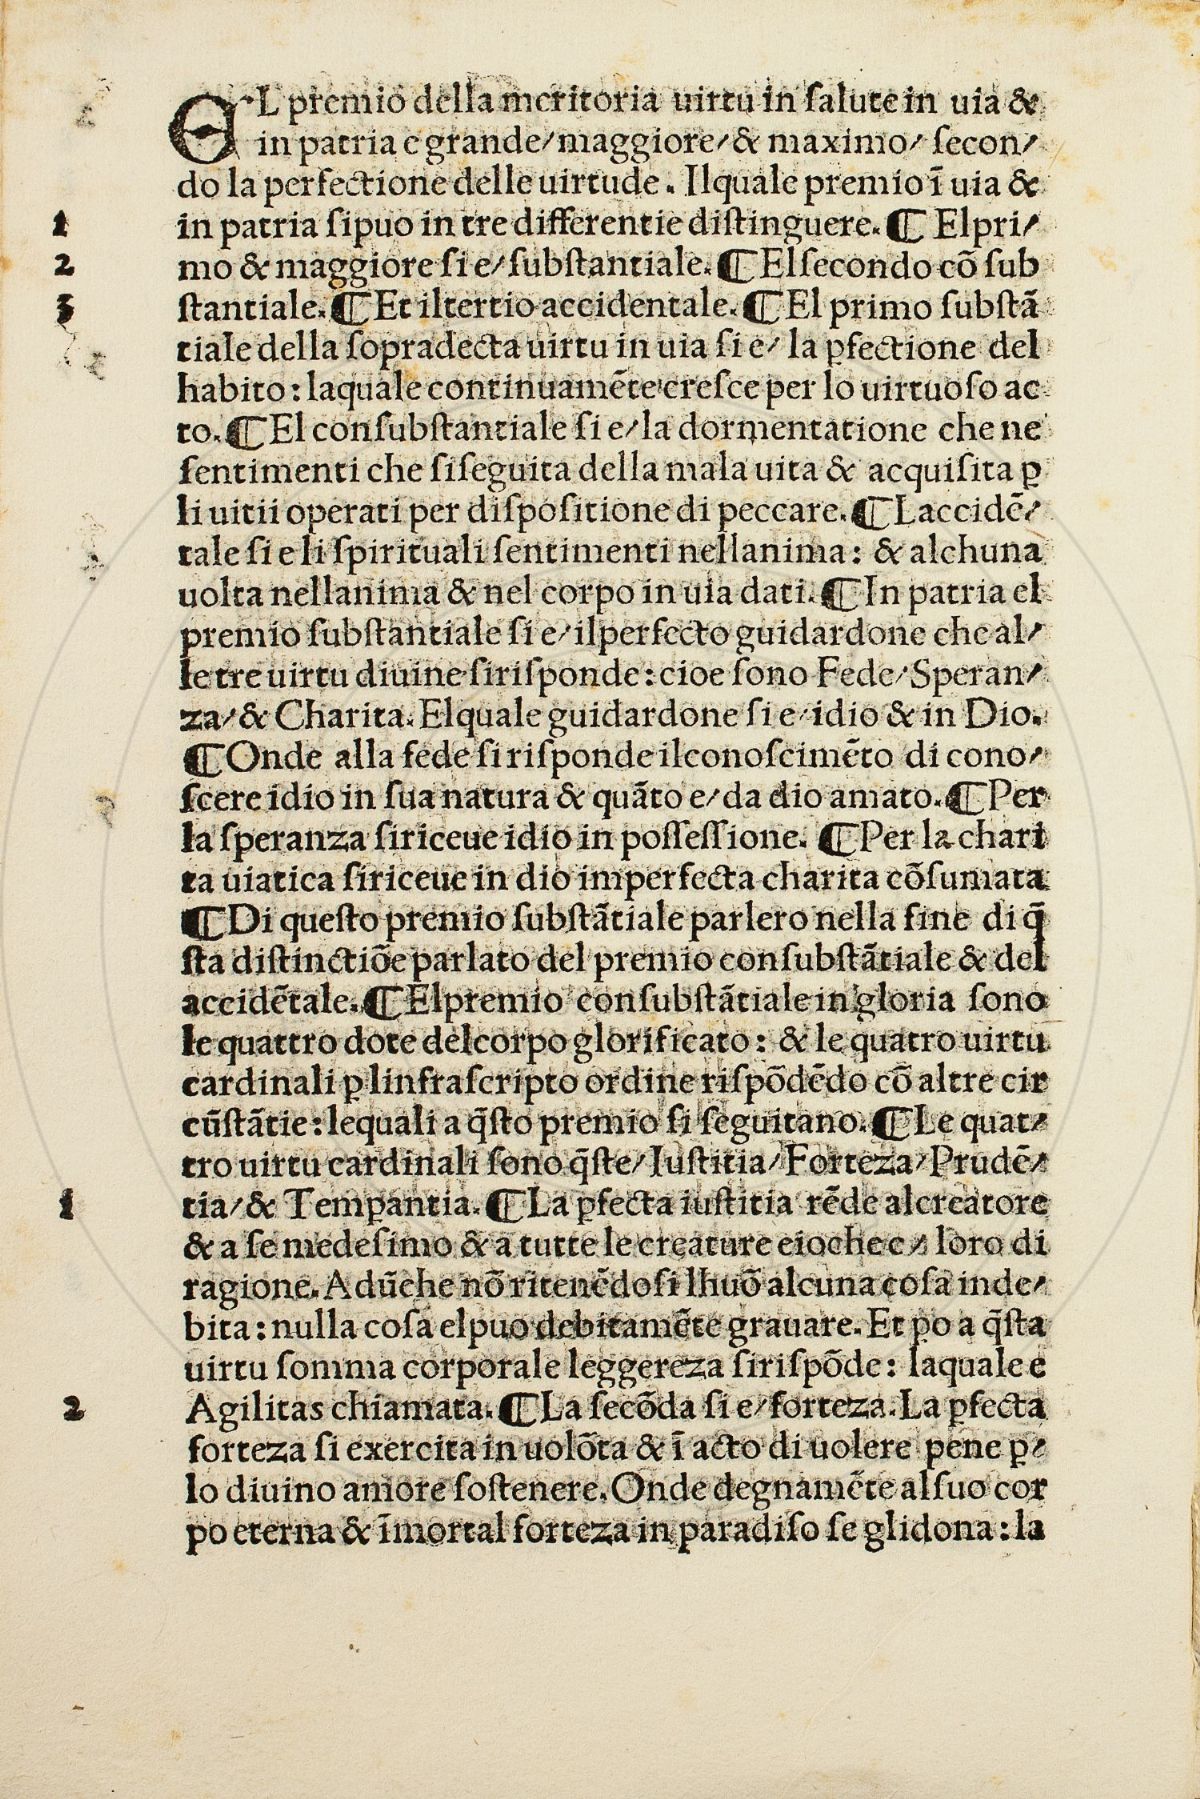 EL premio della meritoria uirtu in ſalute in uia &
in patria e grande/maggiore/& maximo/ ſecon/
do la perfectione delle uirtude. Ilquale premio ī uia &
1 in patria ſipuo in tre differentie diſtinguere.¶ Elpri/
2 mo & maggiore ſi e/ſubſtantiale.¶Elſecondo cō ſub
3 ſtantiale.¶Et iltertio accidentale.¶El primo ſubſtā
tiale della ſopradecta uirtu in uia ſi e/ la ꝑfectione del
habito: laquale continuamēte creſce per lo uirtuoſo ac
to.¶El conſubſtantiale ſi e/la dormentatione che ne
ſentimenti che ſiſeguita della mala uita & acquiſita ꝑ
li uitii operati per diſpoſitione di peccare.¶Laccidē/
tale ſi e li ſpirituali ſentimenti nellanima: & alchuna
uolta nellanima & nel corpo in uia dati.¶In patria el
premio ſubſtantiale ſi e/ilperfecto guidardone che al/
le tre uirtu diuine ſiriſponde:cioe ſono Fede/Speran/
za/& Charita.Elquale guidardone ſi e/idio & in Dio.
¶Onde alla fede ſi riſponde ilconoſcimēto di cono/
ſcere idio in ſua natura & quāto e/da dio amato.¶Per
la ſperanza ſiriceue idio in poſſeſſione. ¶Per la chari
ta uiatica ſiriceue in dio imperfecta charita cōſumata
¶Di queſto premio ſubſtātiale parlero nella fine di q̄
ſta diſtinctiōe parlato del premio conſubſtātiale & del
accidētale.¶Elpremio conſubſtātiale in gloria ſono
le quattro dote delcorpo glorificato: & le quatro uirtu
cardinali ꝑ linfraſcripto ordine riſpōdēdo cō altre cir
cūſtātie:lequali a q̄ſto premio ſi ſeguitano.¶Le quat/
tro uirtu cardinali ſono q̄ſte/Iuſtitia/Forteza/Prudē/
1 tia/& Temꝑantia.¶La ꝑfecta iuſtitia rēde alcreatore
& a ſe medeſimo & a tutte le creature cioche e/ loro di
ragione.Adūche nō ritenēdoſi lhuō alcuna coſa inde/
bita:nulla coſa elpuo debitamēte grauare.Et ꝑo a q̄ſta
uirtu ſomma corporale leggereza ſiriſpōde: laquale e
2 Agilitas chiamata.¶La ſecōda ſi e/forteza.La ꝑfecta
forteza ſi exercita in uolōta & ī acto di uolere pene ꝑ/
lo diuino amore ſoſtenere.Onde degnamēte alſuo cor
po eterna & īmortal forteza in paradiſo ſe glidona:la